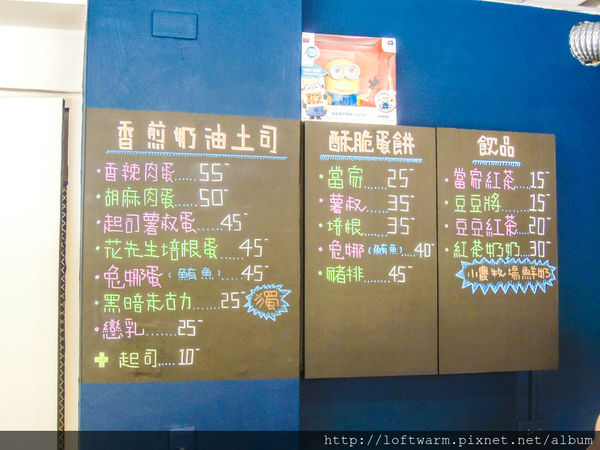 香煎奶油土司
・香辣肉蛋......55-
・胡麻肉蛋......50-
・起司薯叔蛋....45-
・花先生培根蛋...45-
・危娜蛋(鮪魚)....45-
・黑暗朱古力......25- 獨
・戀乳.......25-
+ 起司....10-
酥脆蛋餅
・當家.....25-
・薯叔.....35-
・培根.....35-
・危娜(鮪魚)..40-
・豬排.....45-
飲品
・當家紅茶..15-
・豆豆將.....15-
・豆豆紅茶..20-
・紅茶奶奶..30-
小農牧場鮮奶
http://loftwarm.pixnet.net/album